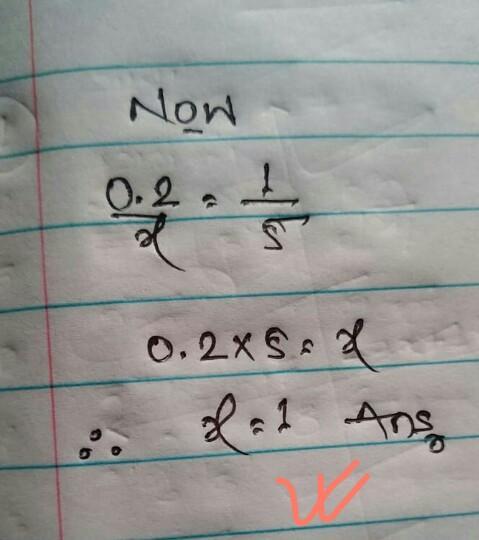 NOW
0.2/x = 1/5
0.2 × 5 = x
∴ x = 1 Ans